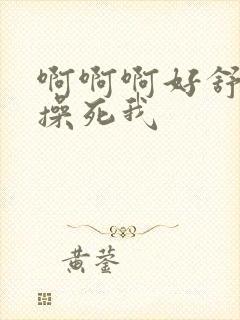 啊啊啊好舒
操死我
黄蓥